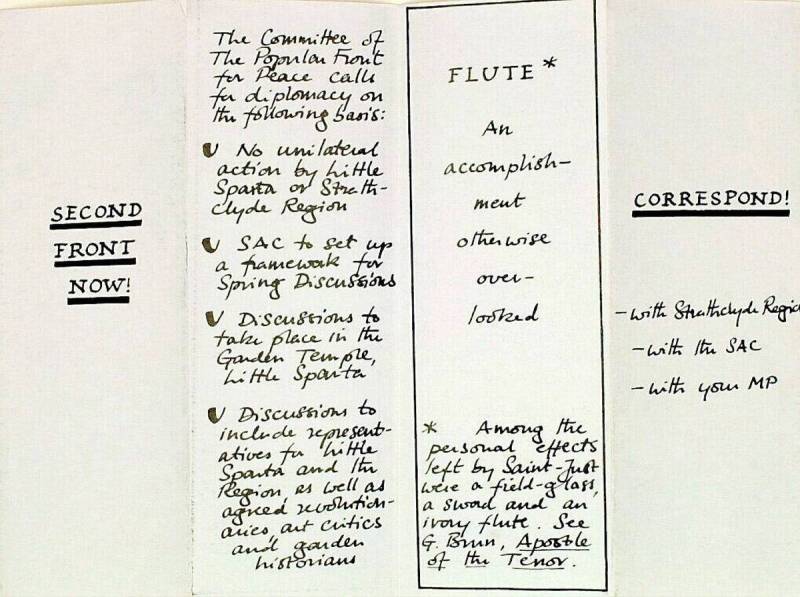 SECOND
FRONT
NOW!
The Committee of
The Popular Front
for Peace calls
for diplomacy on
the following basis:
No unilateral
action by Little
Sparta or Strath-
clyde Region
SAC to set up
a framework for
Spring Discussions
Discussions to
take place in the
Garden Temple,
Little Sparta
Discussions to
include represent-
atives for Little
Sparta and the
Region, as well as
agreed revolution-
aries, art critics
and garden
historians
FLUTE *
An
accomplish-
ment
otherwise
over-
looked
* Among the
personal effects
left by Saint-Just
were a field-glass,
a sword and an
ivory flute. See
G. Bruun, Apostle
of the Terror.
CORRESPOND!
- with Strathclyde Regio
- with the SAC
- with your MP